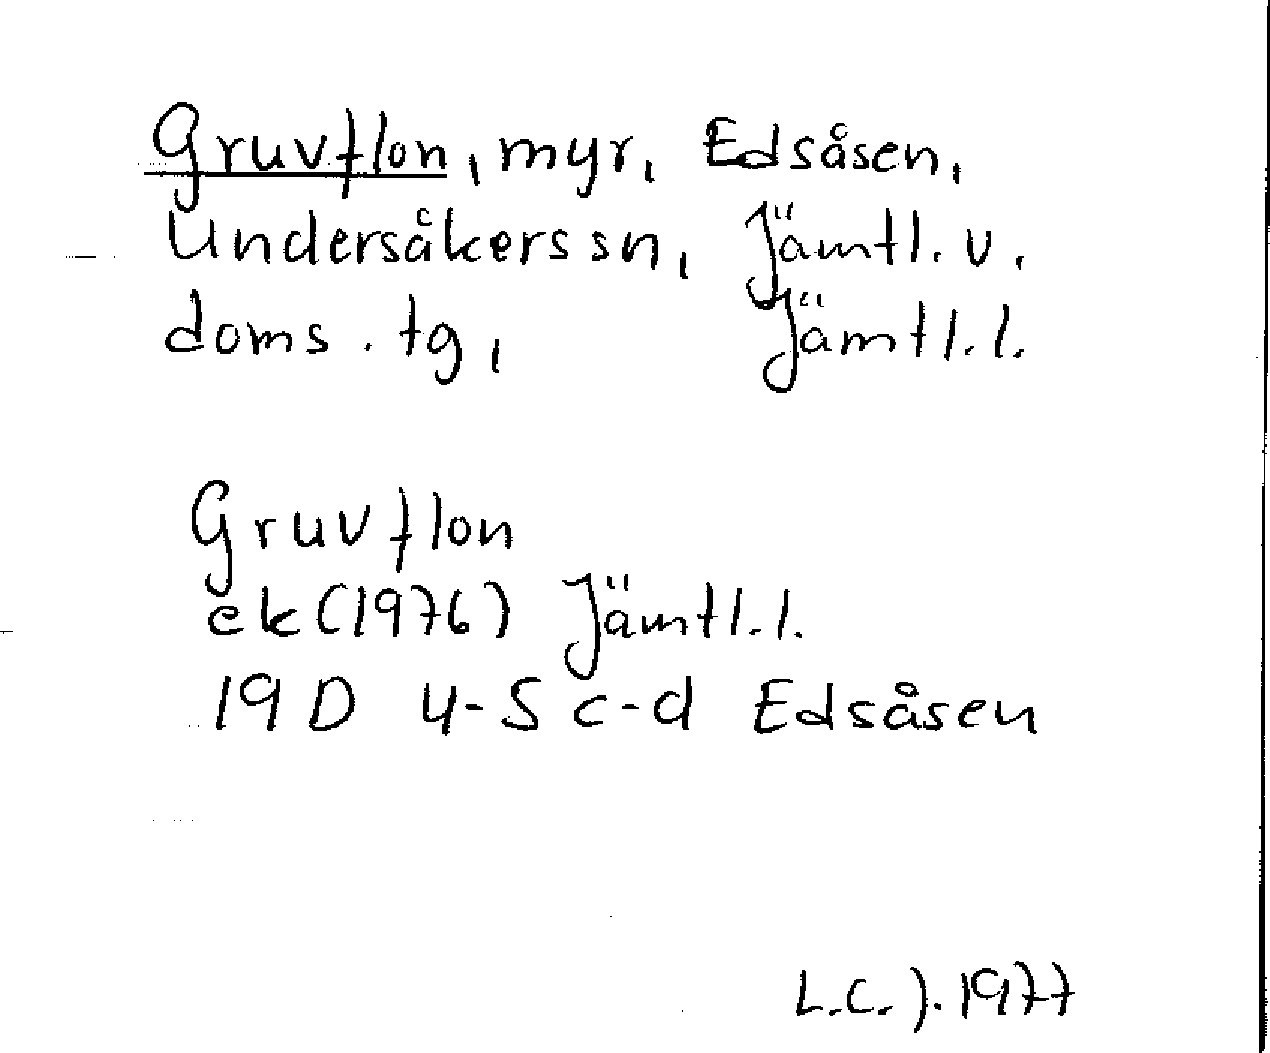 Gruvflon, myr, Edsåsen,
Undersåkers sn, Jämtl. v.
doms. tg, Jämtl. l.
Gruvflon
ek (1976) Jämtl. l.
19 D 4-5 c-d Edsåsen
L.C.J. 1977